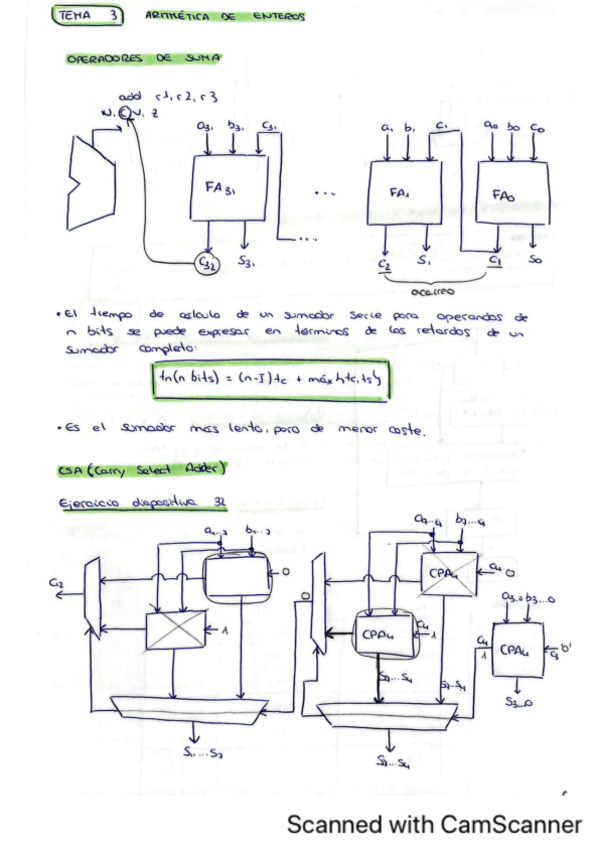 TEMA 3 ARITMÉTICA DE ENTEROS
OPERADORES DE SUMA
add r1, r2, r3
N, C, V, Z
a31 b31 C31
a1 b1 C1
a0 b0 C0
FA31
...
FA1
FA0
...
C32 S31
C2 S1
C1 S0
acarreo
• El tiempo de cálculo de un sumador serie para operandos de
n bits se puede expresar en términos de los retardos de un
sumador completo:
tn(n bits) = (n-I)tc + máx{tc, ts}
• Es el sumador más lento, pero de menor coste.
CSA (Carry Select Adder)
Ejercicio diapositiva 32
a7...4 b7...4
0
CPA4 C4 0
a3...0 b3...0
0
1
CPA4 C4 1
C4 1
CPA4
S7...S4
S7...S4
S3...0
S7...S4
Scanned with CamScanner